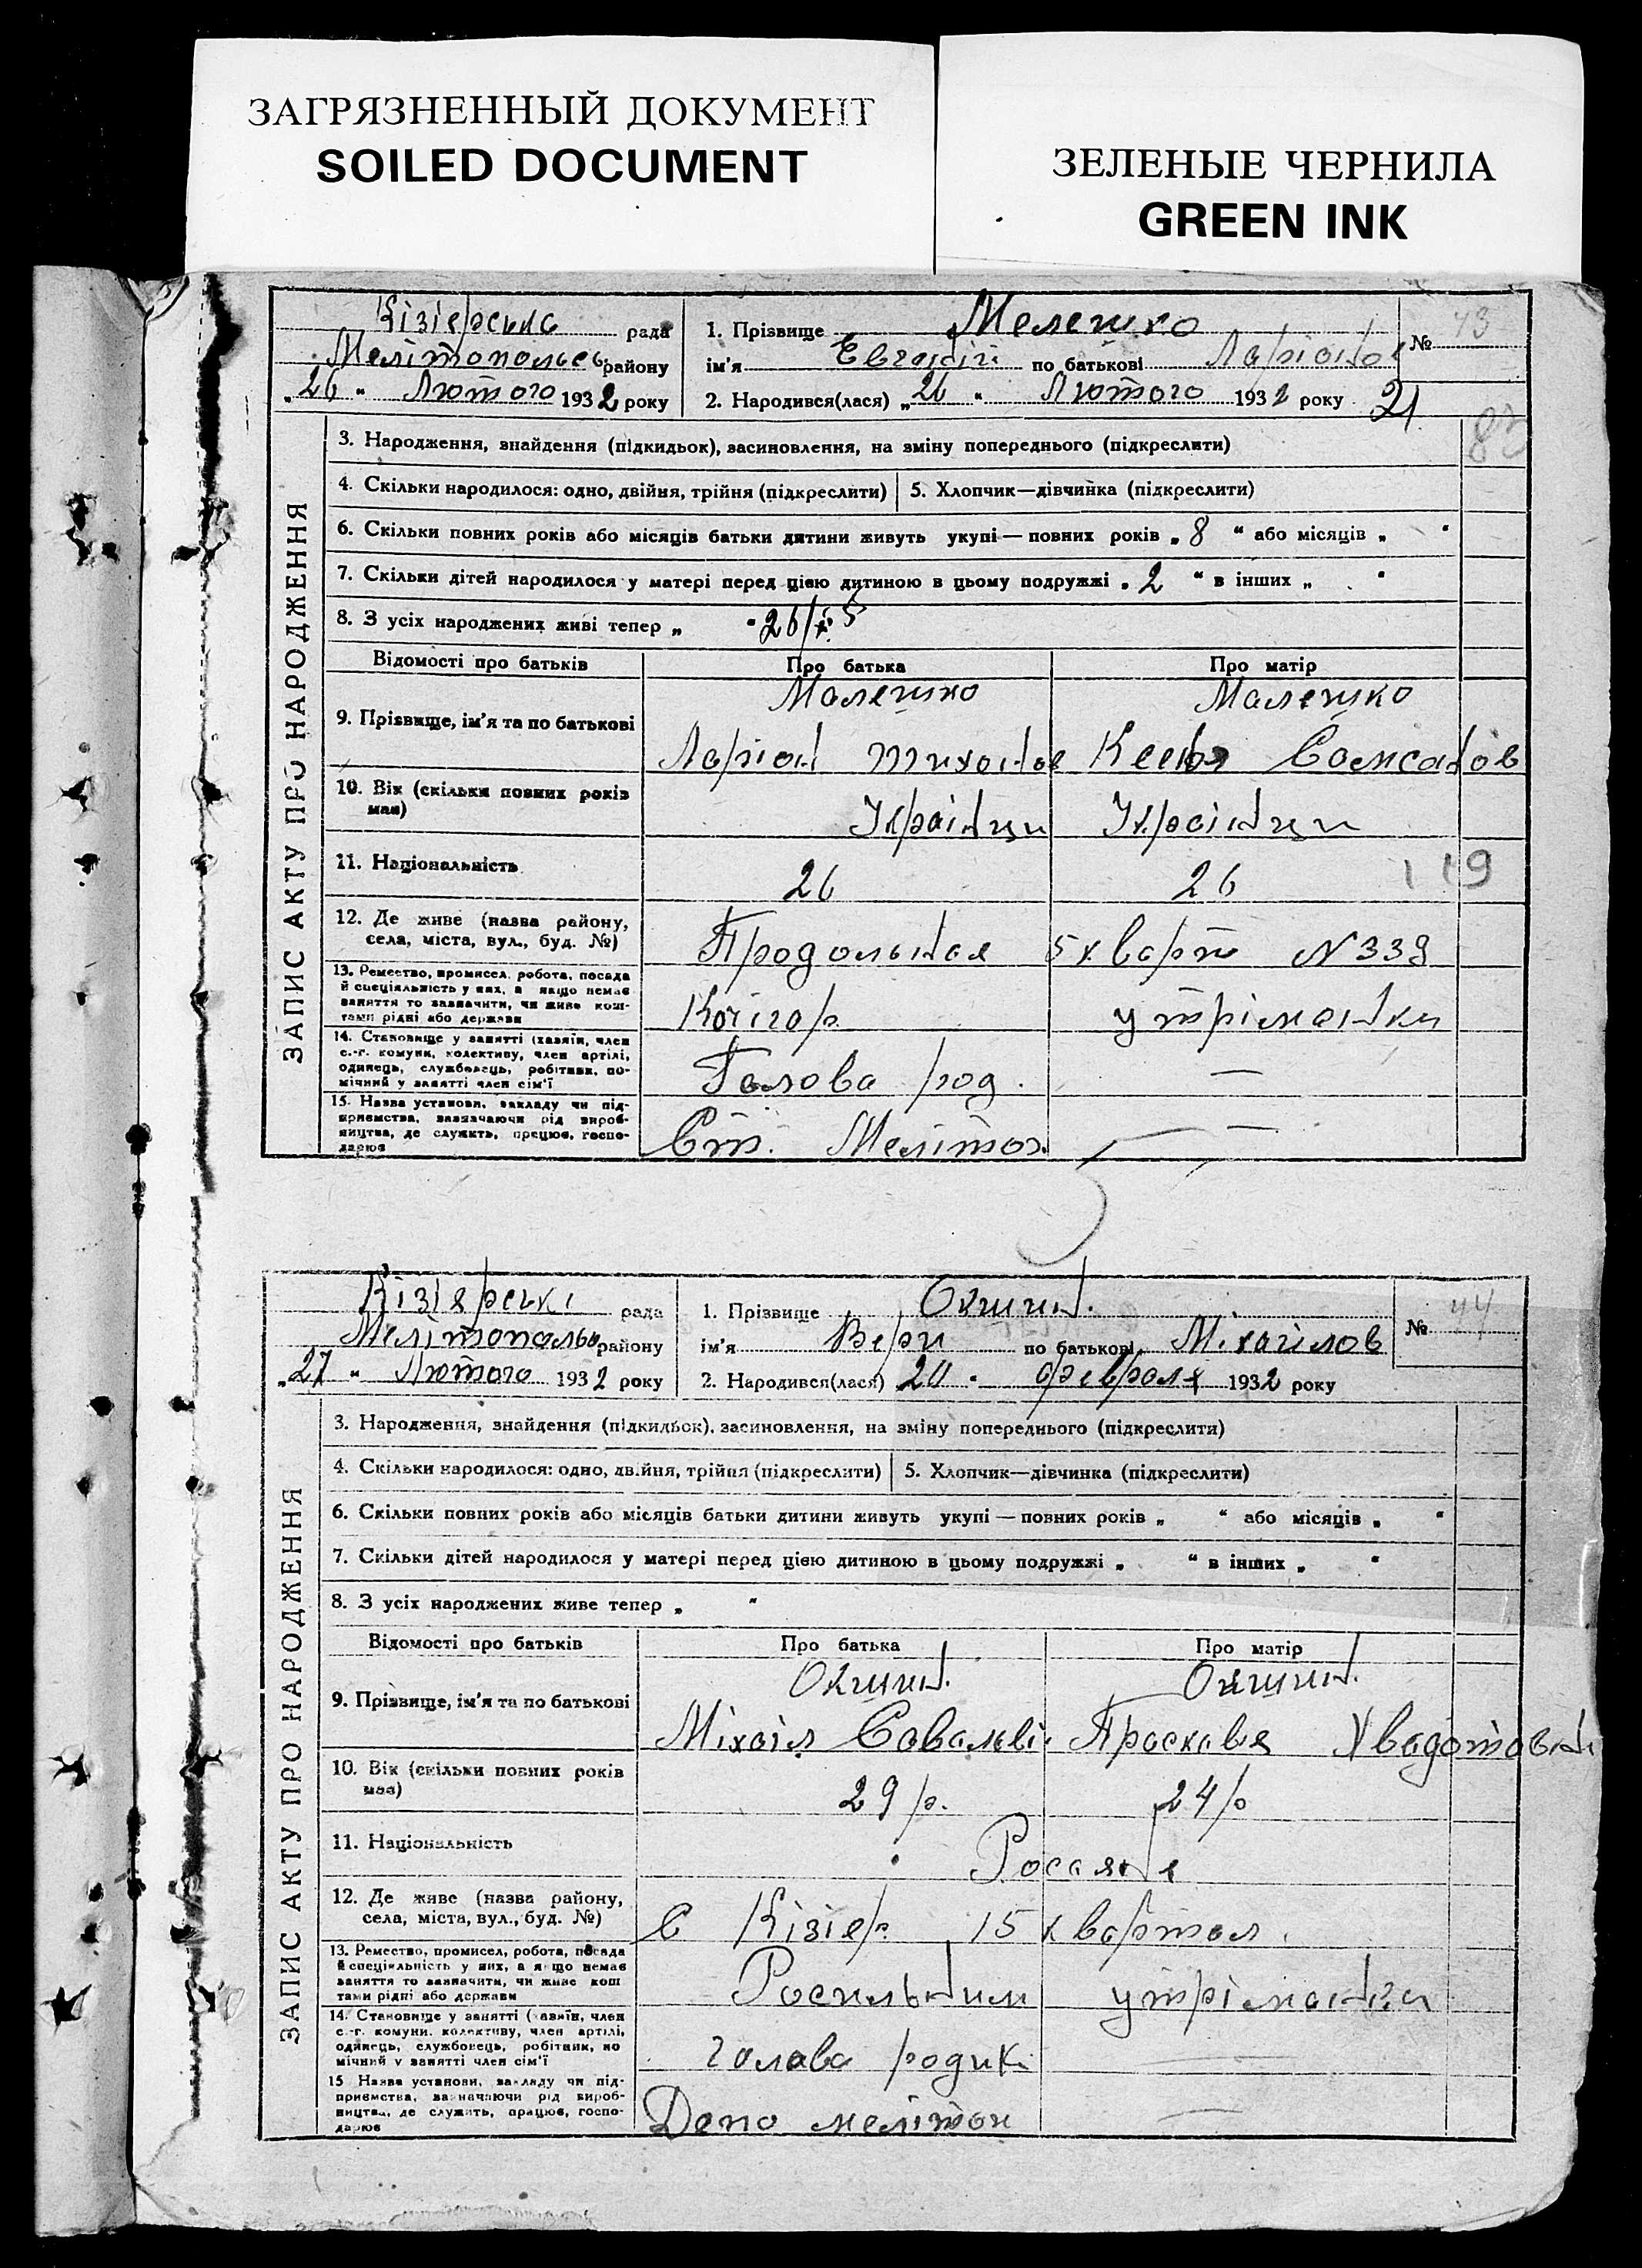 ЗАГРЯЗНЕННЫЙ ДОКУМЕНТ
SOILED DOCUMENT
ЗЕЛЕНЫЕ ЧЕРНИЛА
GREEN INK
ЗАПИС АКТУ ПРО НАРОДЖЕННЯ
рада
району
„26“ Лютого 1932 року
1. Прізвище Мелешко
ім'я по батькові
2. Народився(лася) „26“ Лютого 1932 року 21
№ 43
83
3. Народження, знайдення (підкидьок), засиновлення, на зміну попереднього (підкреслити)
4. Скільки народилося: одно, двійня, трійня (підкреслити) 5. Хлопчик—дівчинка (підкреслити)
6. Скільки повних років або місяців батьки дитини живуть укупі — повних років „8“ або місяців „ “
7. Скільки дітей народилося у матері перед цією дитиною в цьому подружжі „2“ в інших „ “
8. З усіх народжених живі тепер „ “
Відомості про батьків Про батька Про матір
9. Прізвище, ім'я та по батькові Малешко Малешко
Ларіон Тихонов
10. Вік (скільки повних років має) Українци Українци
11. Національність 26 26 119
12. Де живе (назва району, села, міста, вул., буд. №) Продольная 5 кварт N 339
13. Ремество, промисел, робота, посада й спеціяльність у них, а якщо немає заняття то зазначити, чи живе коштами рідні або держави Кочігар утріманки
14. Становище у занятті (хазяїн, член с.-г. комуни, колективу, член артілі, одинець, службовець, робітник, помічний у занятті член сім'ї Голова род. —
15. Назва установи, закладу чи підприємства, зазначаючи рід виробництва, де служить, працює, господарює Ст. Мелітоп. —
ЗАПИС АКТУ ПРО НАРОДЖЕННЯ
рада
району
„27“ Лютого 1932 року
1. Прізвище Окишин.
ім'я Вери по батькові Міхайлов
2. Народився(лася) февраля 1932 року
№ 44
3. Народження, знайдення (підкидьок), засиновлення, на зміну попереднього (підкреслити)
4. Скільки народилося: одно, двійня, трійня (підкреслити) 5. Хлопчик—дівчинка (підкреслити)
6. Скільки повних років або місяців батьки дитини живуть укупі — повних років „ “ або місяців „ “
7. Скільки дітей народилося у матері перед цією дитиною в цьому подружжі „ “ в інших „ “
8. З усіх народжених живе тепер „ “
Відомості про батьків Про батька Про матір
9. Прізвище, ім'я та по батькові Окишин. Окишин.
Міхаіл Просковя
10. Вік (скільки повних років має) 29 р. 24 р
11. Національність Росаяне
12. Де живе (назва району, села, міста, вул., буд. №) С Кізіяр. 15 квартал.
13. Ремество, промисел, робота, посада й спеціяльність у них, а якщо немає заняття то зазначити, чи живе коштами рідні або держави Росильним утріманки
14. Становище у занятті (хазяїн, член с.-г. комуни, колективу, член артілі, одинець, службовець, робітник, помічний у занятті член сім'ї голова родик —
15 Назва установи, закладу чи підприємства, зазначаючи рід виробництва, де служить, працює, господарює Депо мелітоп —